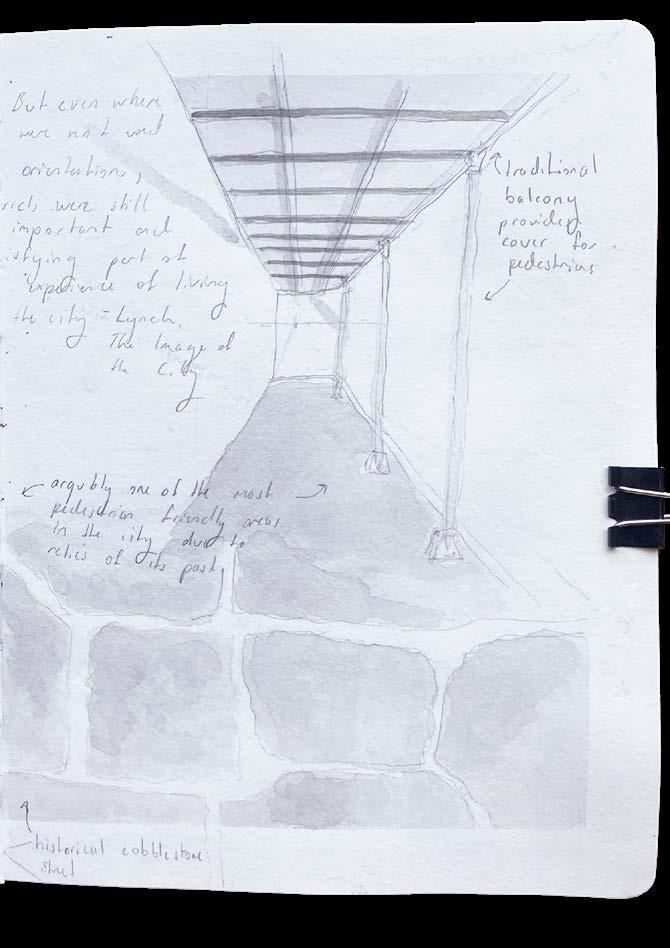 But even where
were not used
orientations,
ricts were still
important and
isfying part of
experience of living
the city - Lynch,
The Image of
the City
traditional
balcony
provides
cover for
pedestrians
argubly one of the most
pedestrian friendly areas
in the city due to
relics of its past
historical cobblestone
street